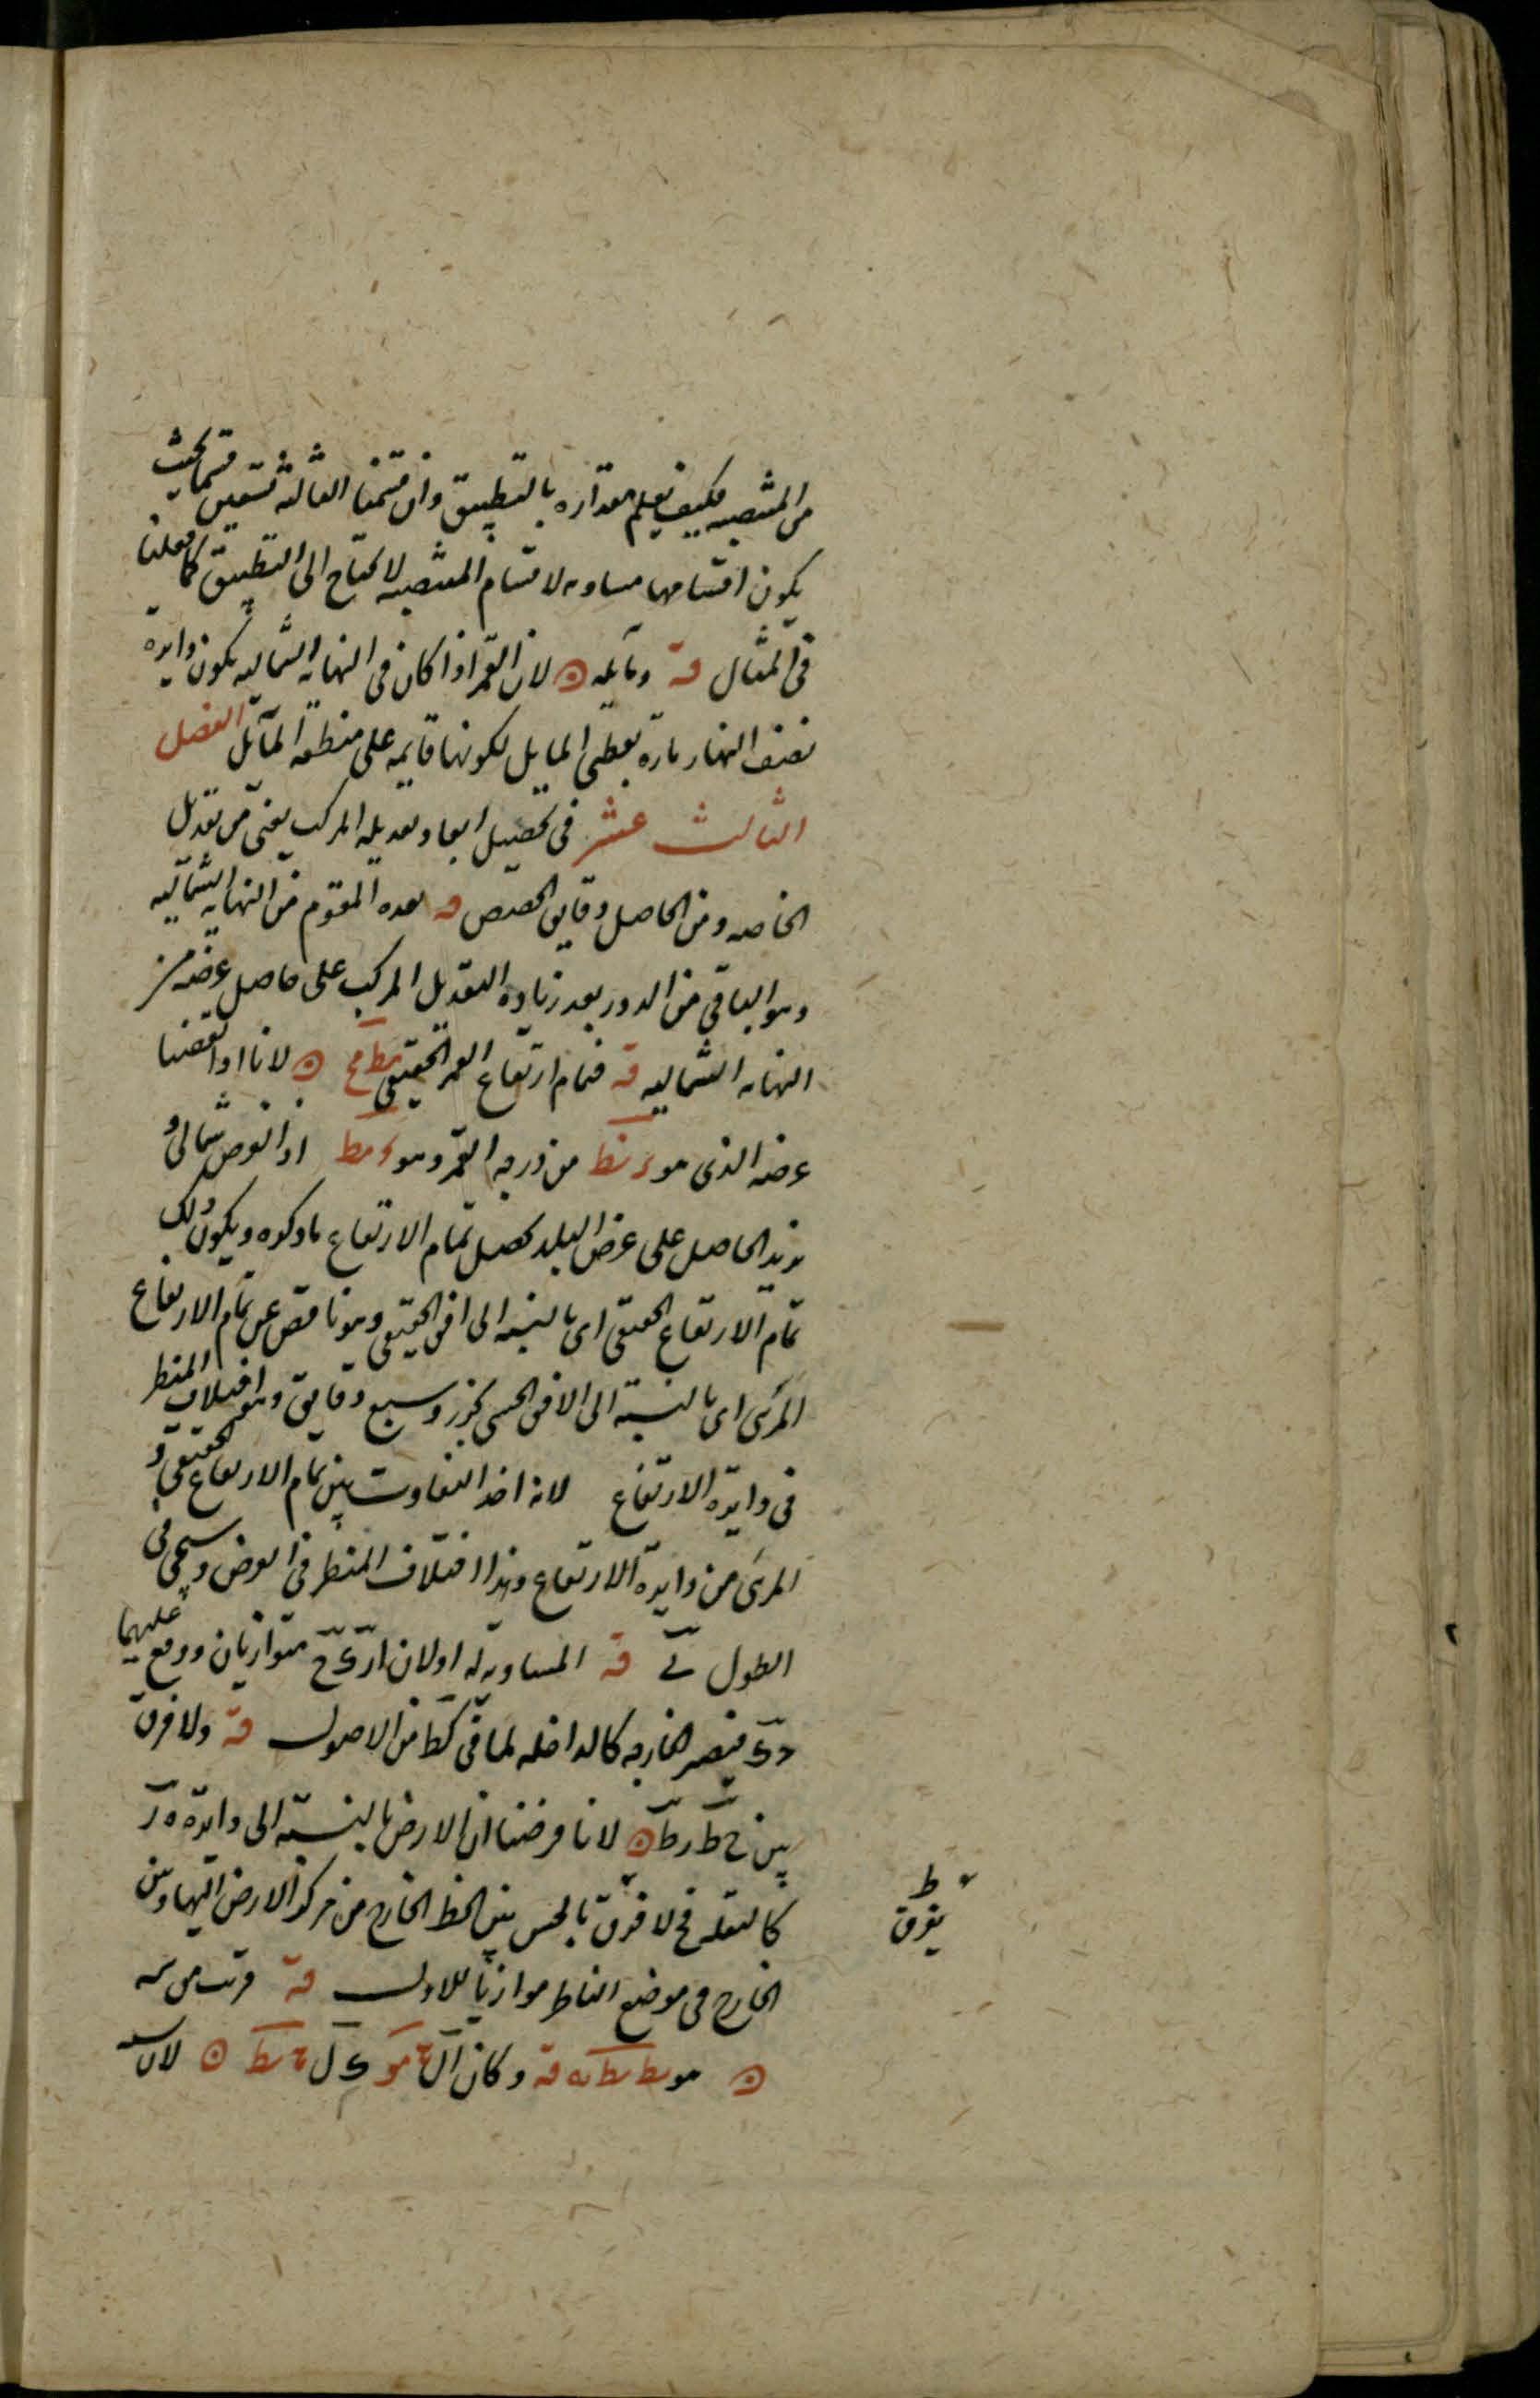 من المنتصبه فكيف نعلم مقداره بالتطبيق وان قسمنا الثالثه تسعين قسما بحيث
يكون اقسامها مساويه لاقسام المنتصبه لا نحتاج الى التطبيق كما فعلنا
فى المثال قه ومايله لان القمر اذا كان فى النهايه الشماليه يكون دايرة
نصف النهار ماره بقطبى المايل لكونها قايمه على منطقه المآئل الفصل
الثالث عشر فى تحصيل ابعاد تعديله المركب يعنى من تعديل
الخاصه ومن الحاصل دقايق الحصص قه بعده المقوم من النهايه الشماليه
وهو الباقى من الدور بعد زياده التعديل المركب على حاصل عرضه من
النهايه الشماليه قه فتمام ارتفاع القمر الحقيقى لانا اذا نقصنا
عرضه الذى هو من درجه القمر وهو اذ العرض شمالى و
نزيد الحاصل على عرض البلد يحصل تمام الارتفاع ما ذكره ويكون ذلك
تمام الارتفاع الحقيقى اى بالنسبه الى افق الحقيقى وهو ناقص عن تمام الارتفاع
المرئى اى بالنسبة الى الافق الحسى بجزر وسبع دقايق وهو اختلاف المنظر
فى دايرة الارتفاع لانه اخذ التفاوت بين تمام الارتفاع الحقيقى و
المرئى من دايرة الارتفاع وهذا اختلاف المنظر فى العرض وسيجى فى
الطول قه المساويه له اولان متوازيان ووقع عليهما
فيصير الخارجه كالداخله لما فى كط من الاصول قه ولا فرق
بين ح ط ر ط لانا فرضنا ان الارض بالنسبة الى دايرة ه ر
كالنقطه فح لا فرق بالحس بين الخط الخارج من مركز الارض اليها وبين
الخارج من موضع الناظر موازيا للاول قه
وكان ال مو لان
ط
يفرق